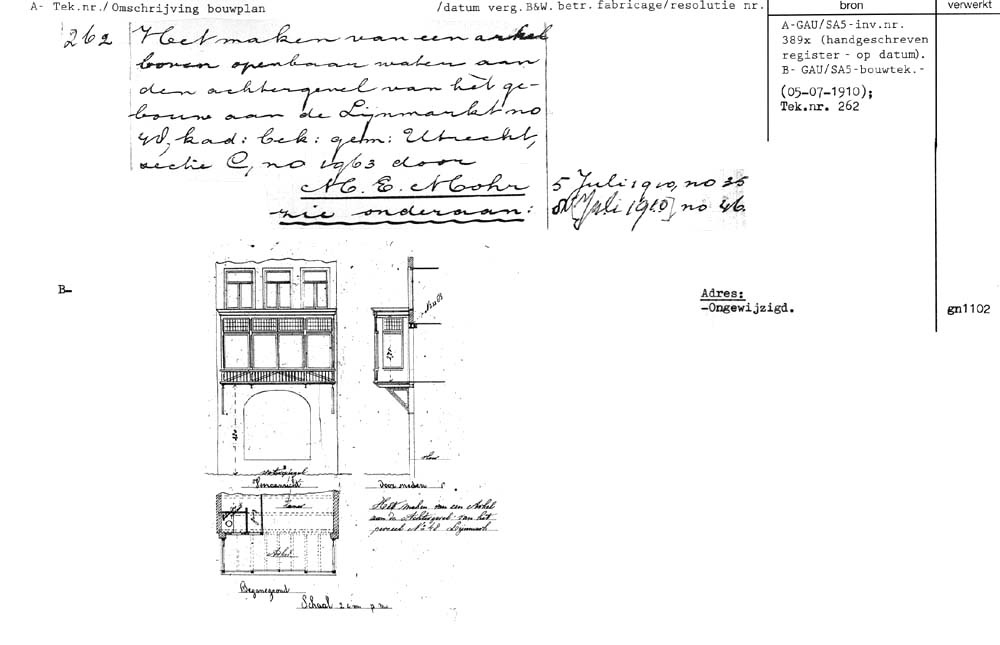 A- Tek.nr./Omschrijving bouwplan /datum verg.B&W.betr.fabricage/resolutie nr. bron verwerkt
262 Het maken van een arkel
boven openbaar water aan
den achtergevel van het ge-
bouw aan de Lijnmarkt no
48, kad: bek: gem: Utrecht,
sectie C, no 1963 door
M. E. Mohr
zie onderaan:
5 Juli 1910, no 35
[Juli 1910] no 46
A-GAU/SA5-inv.nr.
389x (handgeschreven
register - op datum).
B- GAU/SA5-bouwtek.-
(05-07-1910);
Tek.nr. 262
B-
Adres:
-Ongewijzigd.
gn1102
waterspiegel
Vooraanzicht
Doorsneden
Kamer
Arkel
Het maken van een Arkel
aan de Achtergevel van het
perceel No 48 Lijnmarkt
Beganegrond
Schaal 2 cm p. m.